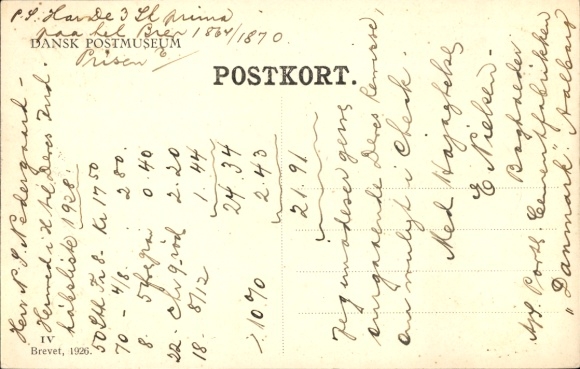 P.S. Har De 3 St prima
paa hel Brev 1864/1870.
Prisen
DANSK POSTMUSEUM
POSTKORT.
Herr N. S. Nedergaard –
Hermed i H til Deres Ind.
købsliste 1928:
50 Stk Tr 8. Kr 17 50
70 – 4/8. 2 80.
8. 5 0 40
22. 2.20
18. 8/12 1.44
24.34
% 10.70 2.43
21.91
Jeg imødeser gerne
angaaende Deres Remisse,
om muligt i Check.
Med Højagtelse
E Nielsen.
Bogholder
A/S Portl. Cementfabrikken
"Danmark" Aalborg
IV
Brevet, 1926.